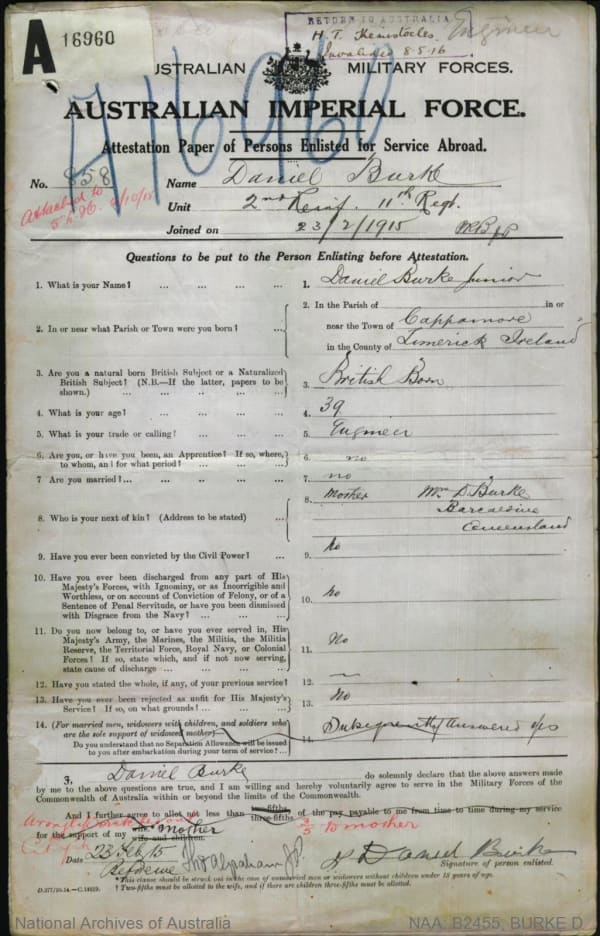 A 16960
RETURN TO AUSTRALIA
H. T. Themistocles.
Invalided 8-5-16.
Engineer
A 16960
AUSTRALIAN MILITARY FORCES.
AUSTRALIAN IMPERIAL FORCE.
Attestation Paper of Persons Enlisted for Service Abroad.
No. 858 Name Daniel Burke
Attached to
Unit 2nd Reinf. 11th Regt.
Joined on 23/2/1915
Questions to be put to the Person Enlisting before Attestation.
1. What is your Name? ... ... ... ... 1. Daniel Burke Junior
2. In or near what Parish or Town were you born? ... 2. In the Parish of in or
near the Town of Cappamore
in the County of Limerick Ireland
3. Are you a natural born British Subject or a Naturalized
British Subject? (N.B.—If the latter, papers to be
shown.) ... ... ... ... 3. British Born
4. What is your age? ... ... ... ... 4. 39
5. What is your trade or calling? ... ... ... 5. Engineer
6. Are you, or have you been, an Apprentice? If so, where,
to whom, and for what period? ... ... ... 6. no
7 Are you married?... ... ... ... 7. no
8. Who is your next of kin? (Address to be stated) ... 8. Mother Mrs D. Burke
Barcaldine
Queensland
9. Have you ever been convicted by the Civil Power? ... 9. No
10. Have you ever been discharged from any part of His
Majesty's Forces, with Ignominy, or as Incorrigible and
Worthless, or on account of Conviction of Felony, or of a
Sentence of Penal Servitude, or have you been dismissed
with Disgrace from the Navy? ... ... ... 10. No
11. Do you now belong to, or have you ever served in, His
Majesty's Army, the Marines, the Militia, the Militia
Reserve, the Territorial Force, Royal Navy, or Colonial
Forces? If so, state which, and if not now serving,
state cause of discharge ... ... ... 11. No
12. Have you stated the whole, if any, of your previous service? 12. —
13. Have you ever been rejected as unfit for His Majesty's
Service? If so, on what grounds? ... ... 13. No
14. (For married men, widowers with children, and soldiers who
are the sole support of widowed mother)
Do you understand that no Separation Allowance will be issued
to you after embarkation during your term of service? ... 14. Subsequently Answered
I, Daniel Burke do solemnly declare that the above answers made
by me to the above questions are true, and I am willing and hereby voluntarily agree to serve in the Military Forces of the
Commonwealth of Australia within or beyond the limits of the Commonwealth.
And I further agree to allot not less than two-fifths three-fifths of the pay payable to me from time to time during my service
2/5 to mother
for the support of my wife wife and children. Mother
Date 23 Feb/15 Daniel Burke
Signature of person enlisted.
D.277/10.14.—C.14829. *This clause should be struck out in the case of unmarried men or widowers without children under 18 years of age.
† Two-fifths must be allotted to the wife, and if there are children three-fifths must be allotted.
National Archives of Australia NAA: B2455, BURKE D